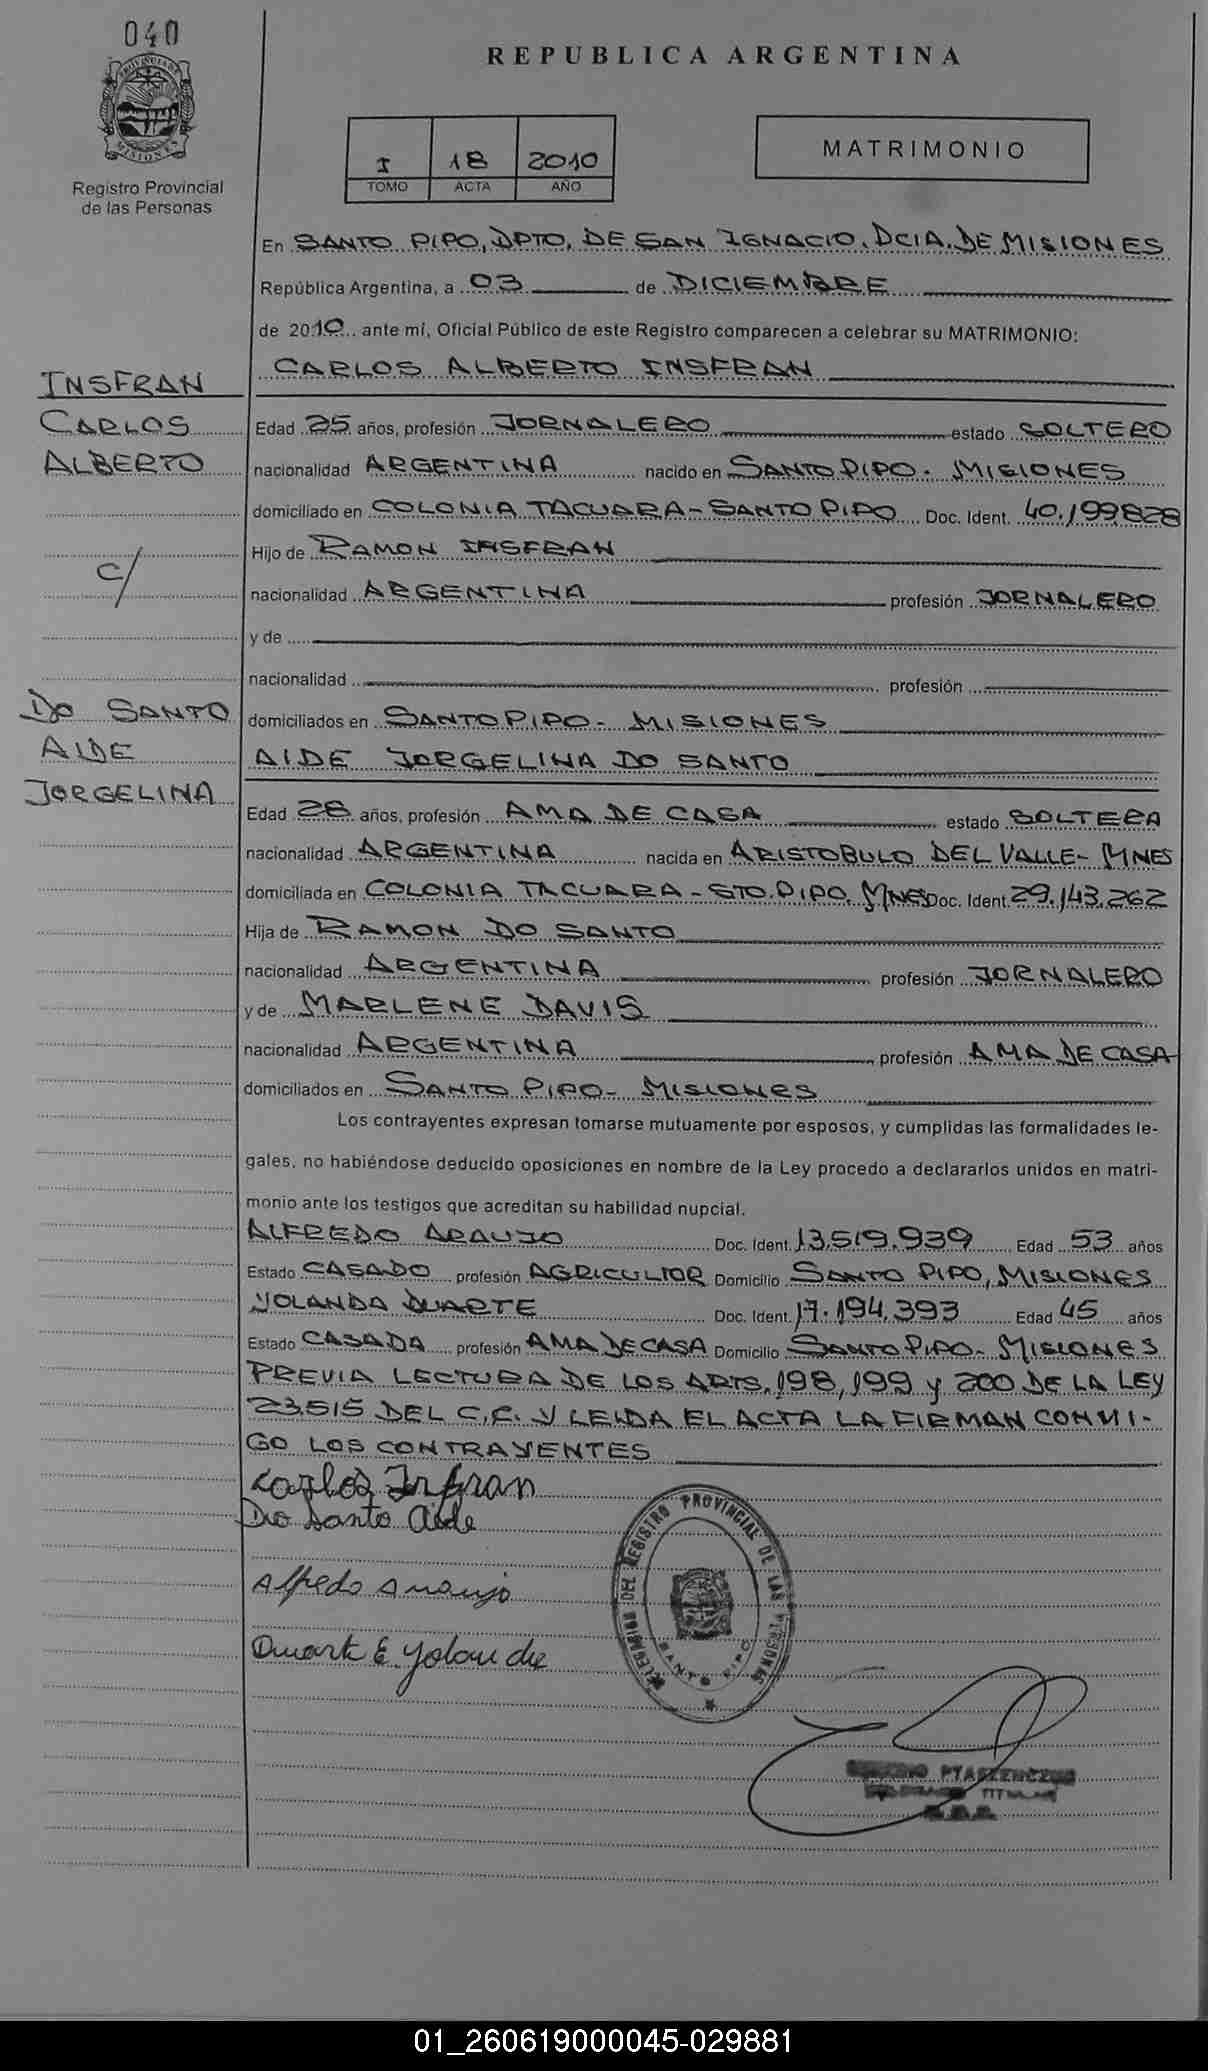 040
PROVINCIA DE
MISIONES
Registro Provincial
de las Personas
REPUBLICA ARGENTINA
I 18 2010
TOMO ACTA AÑO
MATRIMONIO
En SANTO PIPO, DPTO, DE SAN IGNACIO. PCIA. DE MISIONES
República Argentina, a 03 de DICIEMBRE
de 2010 ante mí, Oficial Público de este Registro comparecen a celebrar su MATRIMONIO:
CARLOS ALBERTO INSFRAN
INSFRAN
CARLOS
ALBERTO
c/
DO SANTO
AIDE
JORGELINA
Edad 25 años, profesión JORNALERO estado SOLTERO
nacionalidad ARGENTINA nacido en SANTO PIPO. MISIONES
domiciliado en COLONIA TACUARA - SANTO PIPO Doc. Ident. 40.199828
Hijo de RAMON INSFRAN
nacionalidad ARGENTINA profesión JORNALERO
y de
nacionalidad profesión
domiciliados en SANTO PIPO - MISIONES
AIDE JORGELINA DO SANTO
Edad 28 años, profesión AMA DE CASA estado SOLTERA
nacionalidad ARGENTINA nacida en ARISTOBULO DEL VALLE - MNES
domiciliada en COLONIA TACUARA - STO. PIPO. MNES Doc. Ident. 29.143.262
Hija de RAMON DO SANTO
nacionalidad ARGENTINA profesión JORNALERO
y de MARLENE DAVIS
nacionalidad ARGENTINA profesión AMA DE CASA
domiciliados en SANTO PIPO - MISIONES
Los contrayentes expresan tomarse mutuamente por esposos, y cumplidas las formalidades le-
gales, no habiéndose deducido oposiciones en nombre de la Ley procedo a declararlos unidos en matri-
monio ante los testigos que acreditan su habilidad nupcial.
ALFREDO ARAUJO Doc. Ident. 13.519.939 Edad 53 años
Estado CASADO profesión AGRICULTOR Domicilio SANTO PIPO, MISIONES
YOLANDA DUARTE Doc. Ident. 17.194.393 Edad 45 años
Estado CASADA profesión AMA DE CASA Domicilio SANTO PIPO - MISIONES
PREVIA LECTURA DE LOS ARTS. 198, 199 y 200 DE LA LEY
23.515 DEL C.C. Y LEIDA EL ACTA LA FIRMAN CONMI-
GO LOS CONTRAYENTES
Carlos Insfran
Do Santo Aide
Alfredo Araujo
Duarte E. Yolanda
DELEGACION DEL REGISTRO PROVINCIAL DE LAS PERSONAS
SANTO PIPO
TITULAR
01_260619000045-029881